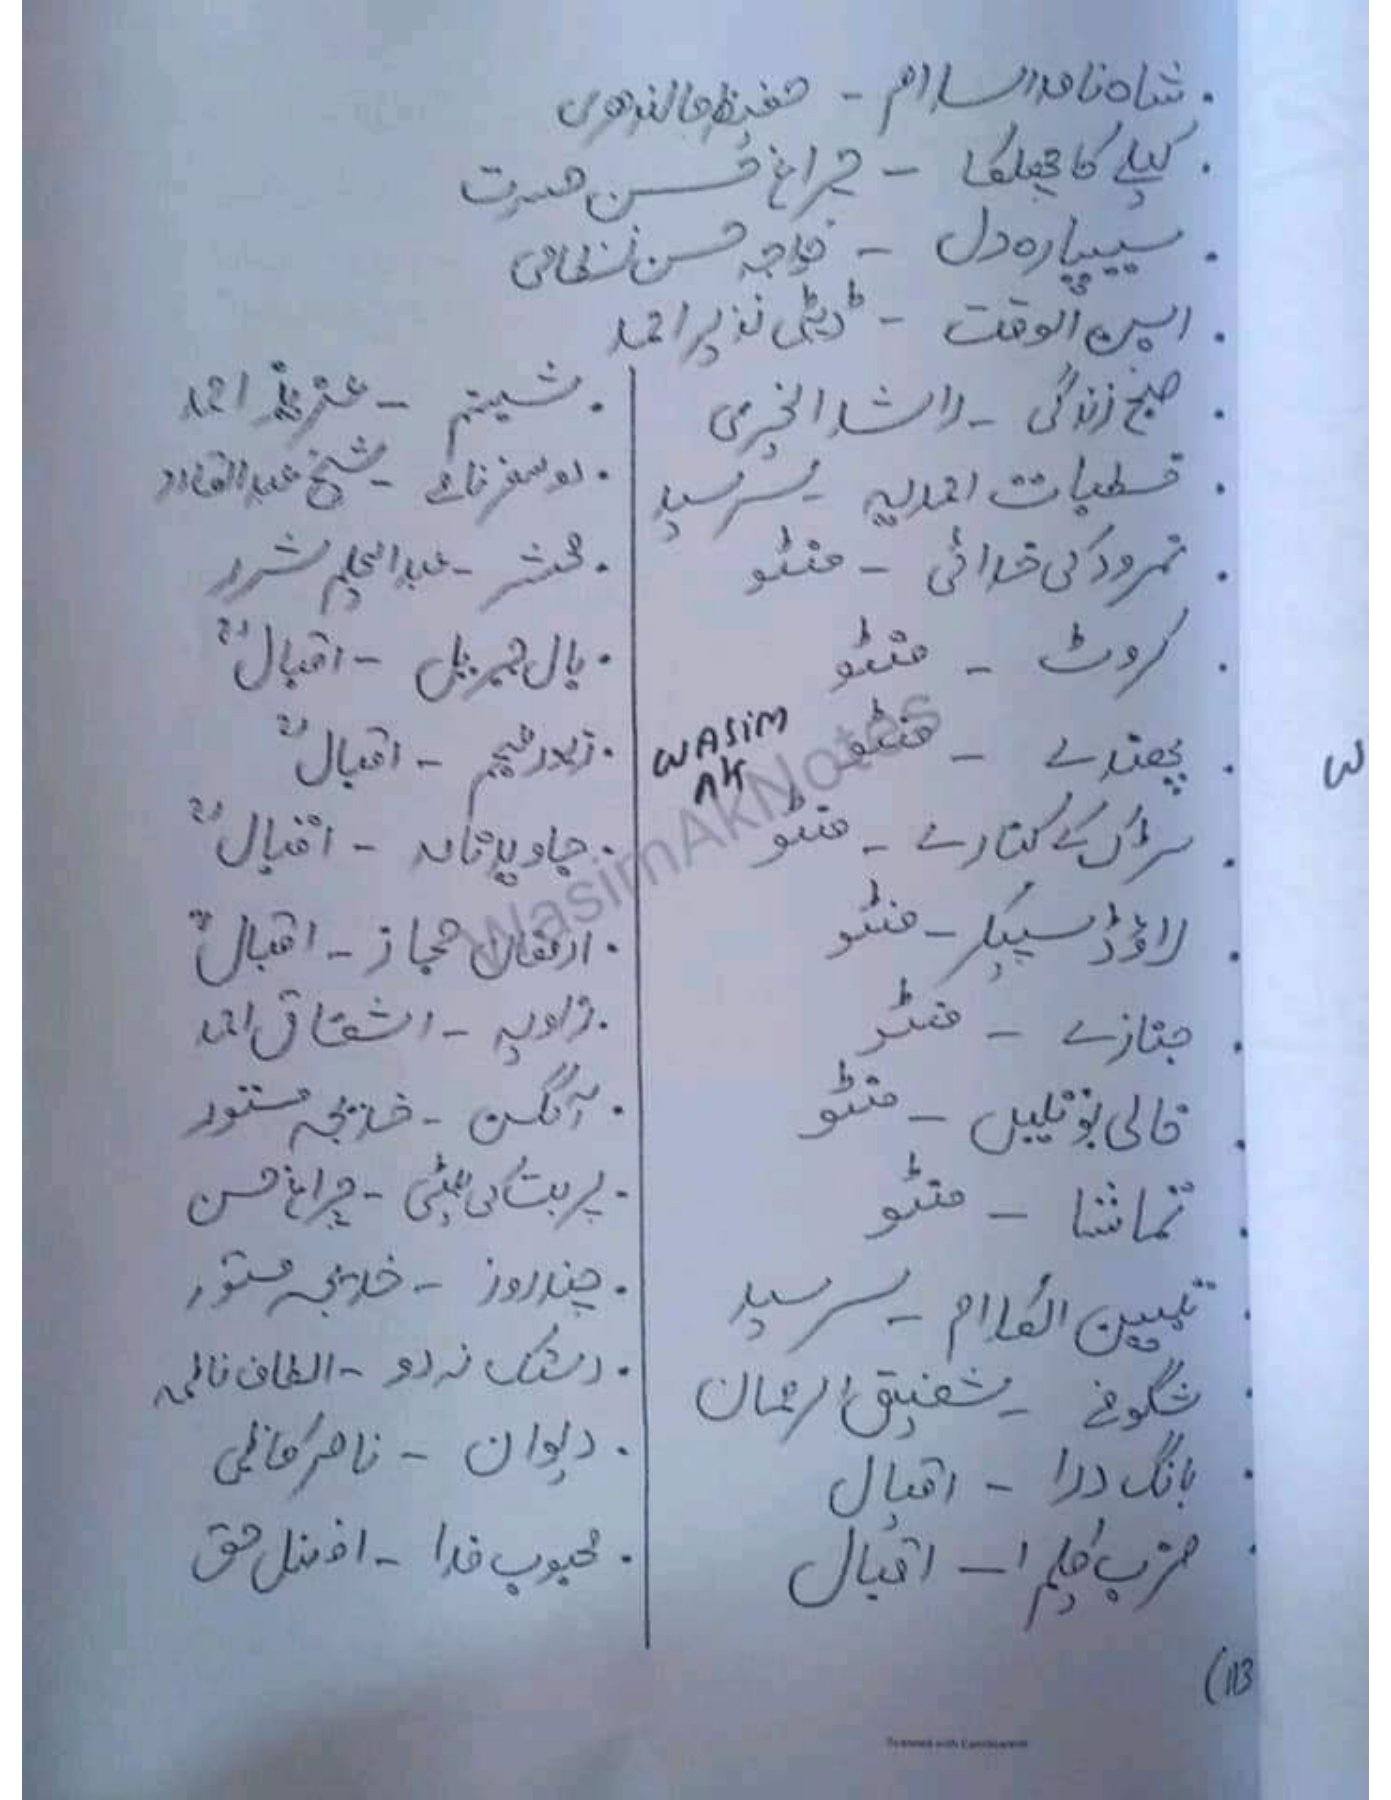 شاہ نامہ اسلام - حفیظ جالندھری
کیلے کا چھلکا - چراغ حسن حسرت
سیپارہ دل - خواجہ حسن نظامی
ابن الوقت - ڈپٹی نذیر احمد
صبح زندگی - راشد الخیری
خطبات احمدیہ - سرسید
نمرود کی خدائی - منٹو
کروٹ - منٹو
پھندے - منٹو
WASiM
AK
سڑک کے کنارے - منٹو
لاؤڈ سپیکر - منٹو
جنازے - منٹو
خالی بوتلیں - منٹو
تماشا - منٹو
تبیین الکلام - سرسید
شگوفے - شفیق الرحمان
بانگ درا - اقبال
ضرب کلیم - اقبال
شبنم - عزیز احمد
دو سفر نامے - شیخ عبدالقادر
محشر - عبدالحلیم شرر
بال جبریل - اقبالؒ
زبور عجم - اقبالؒ
جاوید نامہ - اقبالؒ
ارمغان حجاز - اقبالؒ
زاویہ - اشفاق احمد
آنگن - خدیجہ مستور
پربت کی بیٹی - چراغ حسن
چند روز - خدیجہ مستور
دستک نہ دو - الطاف فاطمہ
دیوان - ناصر کاظمی
محبوب خدا - افضل حق
WasimAkNotes
(113
Scanned with CamScanner